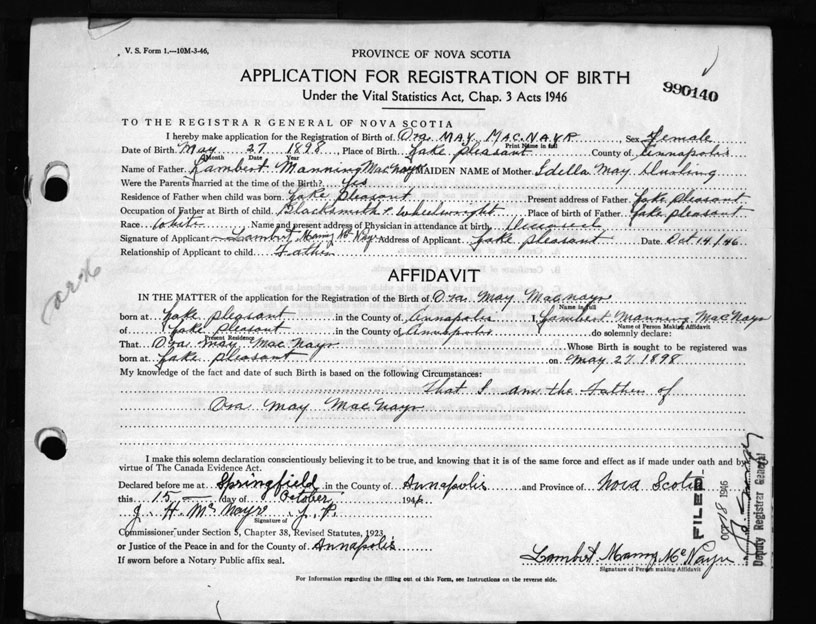 V. S. Form 1.—10M-3-46.
PROVINCE OF NOVA SCOTIA
APPLICATION FOR REGISTRATION OF BIRTH
990140
Under the Vital Statistics Act, Chap. 3 Acts 1946
TO THE REGISTRAR GENERAL OF NOVA SCOTIA
I hereby make application for the Registration of Birth of Ora MAY MACNAYR Sex Female
Print Name in full
Date of Birth May 27 1898 Place of Birth Lake Pleasant County of Annapolis
Month Date Year
Name of Father Lambert Manning MacNayr MAIDEN NAME of Mother Idella May
Were the Parents married at the time of the Birth? Yes
Residence of Father when child was born Lake Pleasant Present address of Father Lake Pleasant
Occupation of Father at Birth of child Blacksmith & Wheelwright Place of birth of Father Lake Pleasant
Race White Name and present address of Physician in attendance at birth Deceased
Signature of Applicant Lambert Manning McNayr Address of Applicant Lake Pleasant Date Oct 14/46
Relationship of Applicant to child Father
AFFIDAVIT
IN THE MATTER of the application for the Registration of the Birth of Ora May MacNayr
Name in full
born at Lake Pleasant in the County of Annapolis I, Lambert Manning MacNayr
Name of Person Making Affidavit
of Lake Pleasant in the County of Annapolis do solemnly declare:
Present Residence
That Ora May MacNayr Whose Birth is sought to be registered was
born at Lake Pleasant on May 27 1898
My knowledge of the fact and date of such Birth is based on the following Circumstances:
That I am the Father of
Ora May MacNayr
I make this solemn declaration conscientiously believing it to be true, and knowing that it is of the same force and effect as if made under oath and by
virtue of The Canada Evidence Act.
Declared before me at Springfield in the County of Annapolis and Province of Nova Scotia
this 15 — day of October 1946
J. H. McNayr J. P.
Signature of
Commissioner under Section 5, Chapter 38, Revised Statutes, 1923
or Justice of the Peace in and for the County of Annapolis
If sworn before a Notary Public affix seal.
Lambert Manning McNayr
Signature of Person making Affidavit
For Information regarding the filling out of this Form, see Instructions on the reverse side.
FILED
OCT 18 1946
Deputy Registrar General